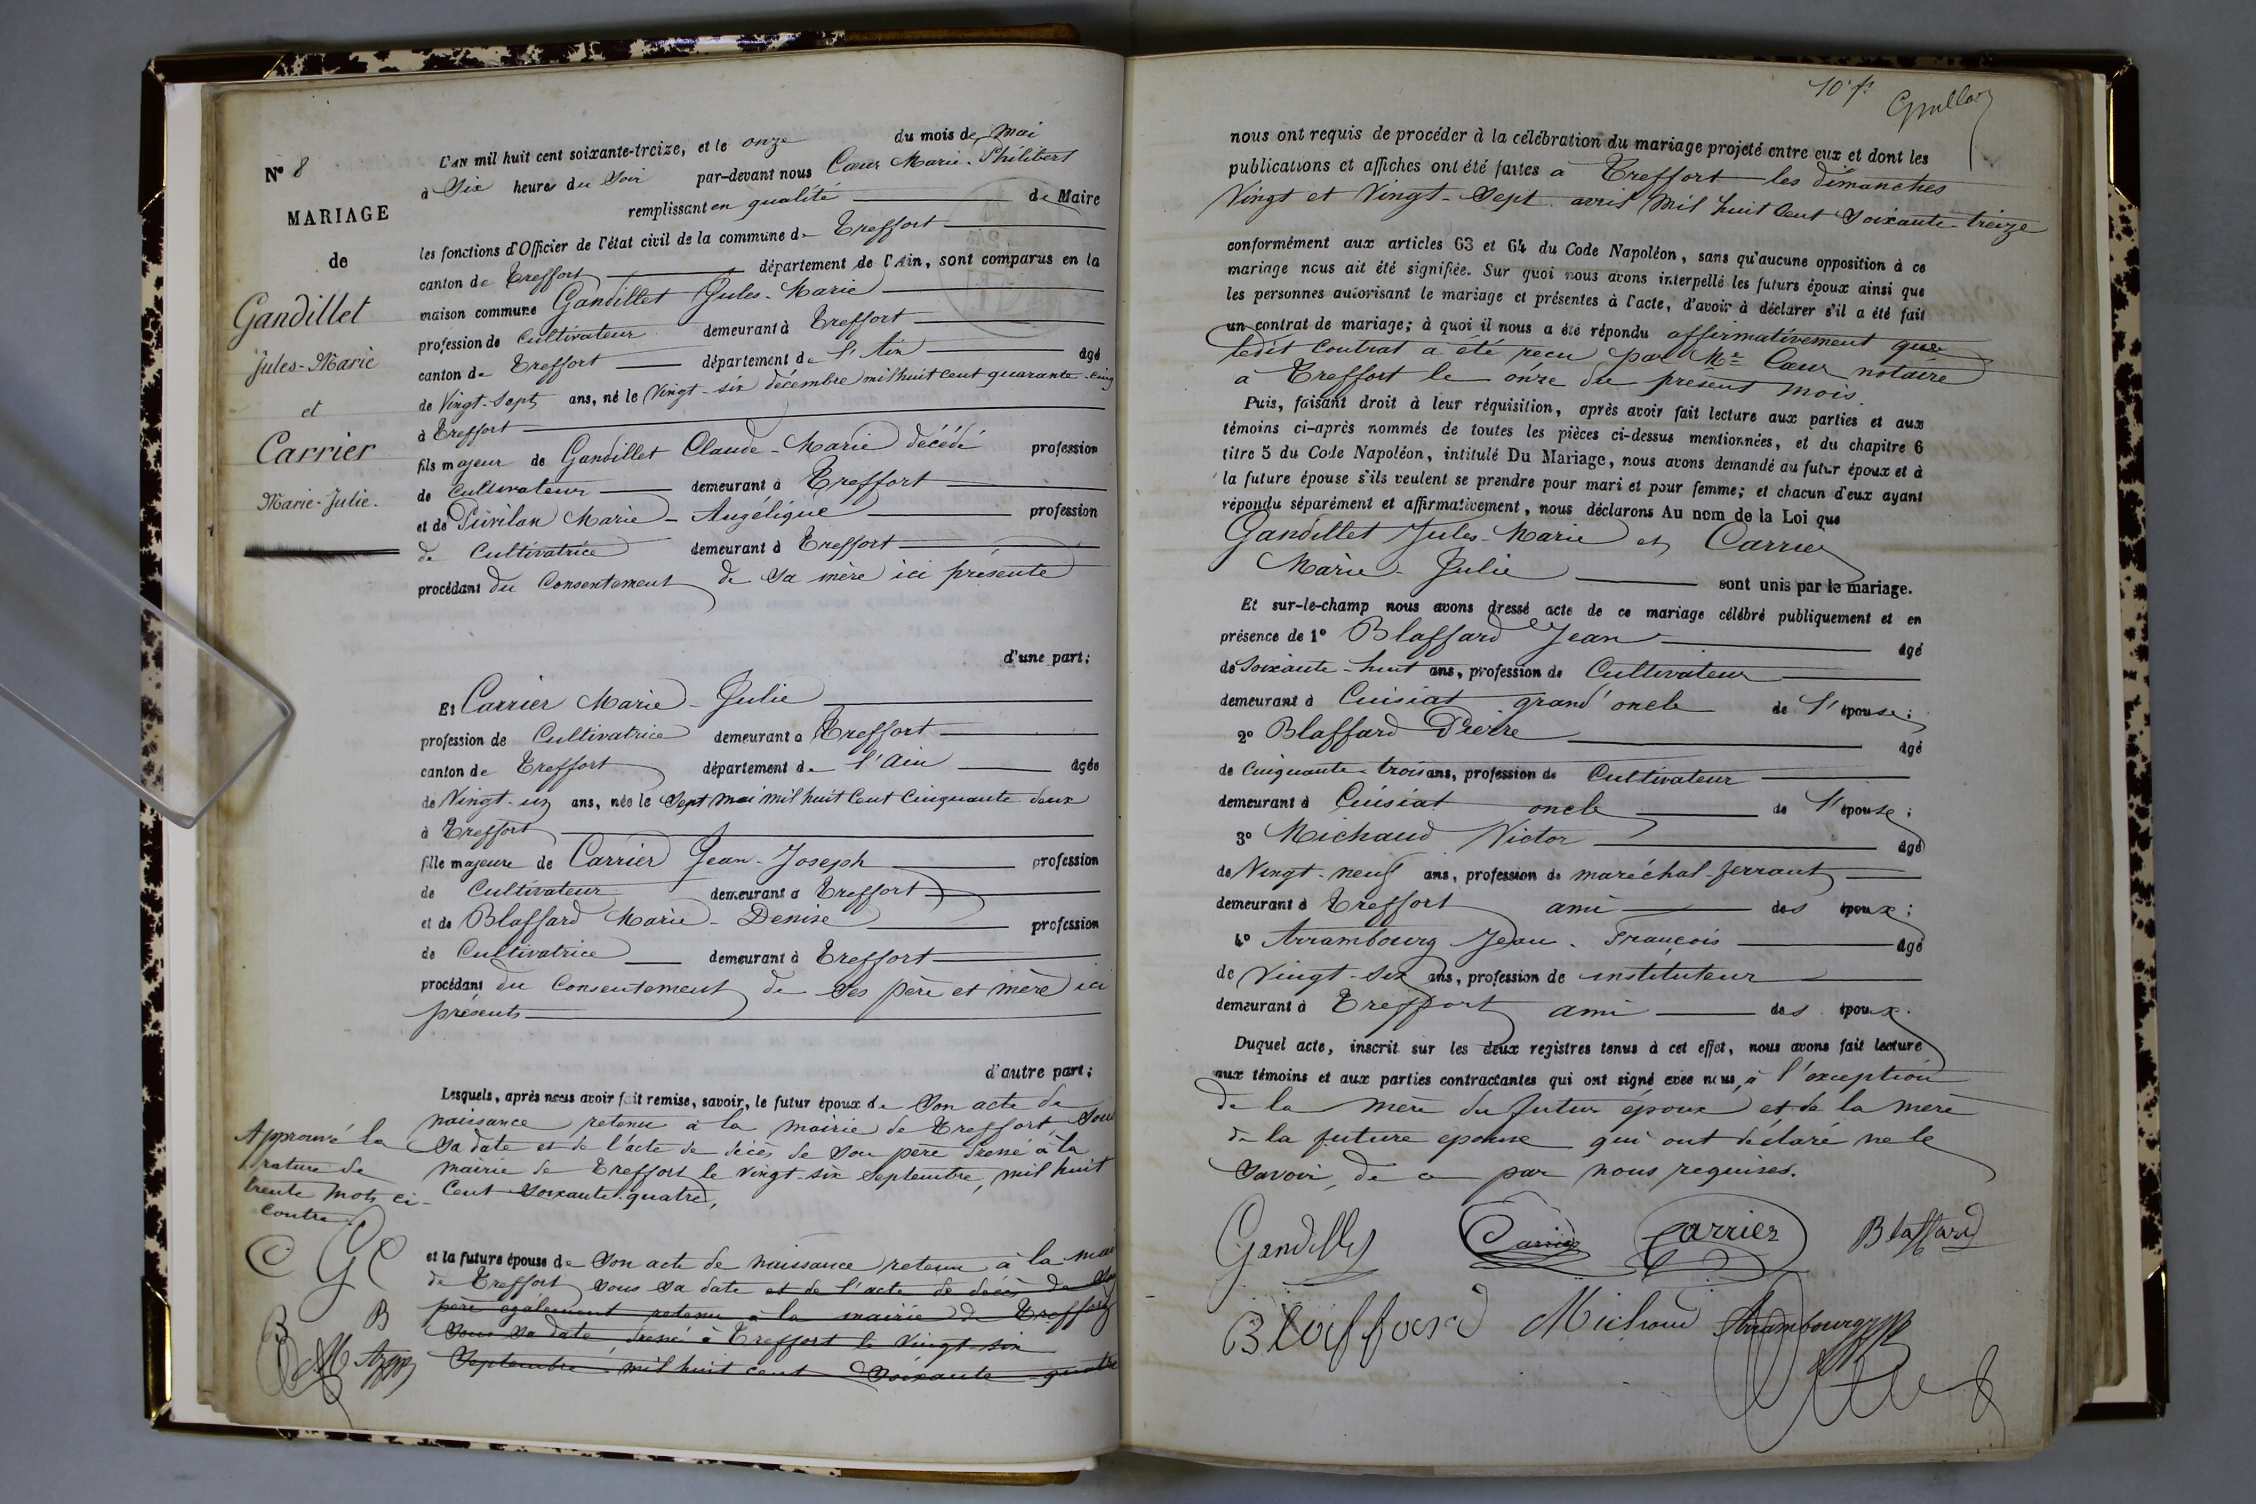 N° 8
MARIAGE
de
Gandillet
Jules-Marie
et
Carrier
Marie-Julie.
L'AN mil huit cent soixante-treize, et le onze du mois de Mai
à Six heures du Soir par-devant nous Cœur Marie-Philibert
remplissant en qualité de Maire
les fonctions d'Officier de l'état civil de la commune de Treffort
canton de Treffort département de l'Ain, sont comparus en la
maison commune Gandillet Jules-Marie
profession de Cultivateur demeurant à Treffort
canton de Treffort département de l'Ain âgé
de Vingt-Sept ans, né le Vingt-six décembre mil huit cent quarante-cinq
à Treffort
fils majeur de Gandillet Claude-Marie décédé profession
de Cultivateur demeurant à Treffort
et de Marie-Angélique profession
de Cultivatrice demeurant à Treffort
procédant du Consentement de sa mère ici présente
d'une part;
Et Carrier Marie-Julie
profession de Cultivatrice demeurant à Treffort
canton de Treffort département de l'Ain âgée
de Vingt-un ans, née le Sept Mai mil huit Cent Cinquante deux
à Treffort
fille majeure de Carrier Jean-Joseph profession
de Cultivateur demeurant à Treffort
et de Blaffard Marie-Denise profession
de Cultivatrice demeurant à Treffort
procédant du Consentement de Ses père et mère ici
présents
d'autre part;
Lesquels, après nous avoir fait remise, savoir, le futur époux de Son acte de
naissance retenu à la mairie de Treffort Sous
Sa date et de l'acte de décès de Son père dressé à la
mairie de Treffort le vingt-six Septembre, mil huit
Cent Soixante-quatre,
Approuvé la
rature de
trente mots ci-
contre.
C G C
B B
et la future épouse de Son acte de naissance retenu à la mai
de Treffort Sous Sa date et de l'acte de décès de Son
père également retenu à la mairie de Treffort
Sous Sa date dressé à Treffort le Vingt-six
Septembre mil huit cent Soixante-quatre
10e ft
nous ont requis de procéder à la célébration du mariage projeté entre eux et dont les
publications et affiches ont été faites à Treffort les dimanches
Vingt et Vingt-Sept avril Mil huit Cent Soixante-treize
conformément aux articles 63 et 64 du Code Napoléon, sans qu'aucune opposition à ce
mariage nous ait été signifiée. Sur quoi nous avons interpellé les futurs époux ainsi que
les personnes autorisant le mariage et présentes à l'acte, d'avoir à déclarer s'il a été fait
un contrat de mariage; à quoi il nous a été répondu affirmativement que
ledit Contrat a été reçu par Me Cœur notaire
à Treffort le onze du présent mois.
Puis, faisant droit à leur réquisition, après avoir fait lecture aux parties et aux
témoins ci-après nommés de toutes les pièces ci-dessus mentionnées, et du chapitre 6
titre 5 du Code Napoléon, intitulé Du Mariage, nous avons demandé au futur époux et à
la future épouse s'ils veulent se prendre pour mari et pour femme; et chacun d'eux ayant
répondu séparément et affirmativement, nous déclarons Au nom de la Loi que
Gandillet Jules-Marie et Carrier
Marie-Julie sont unis par le mariage.
Et sur-le-champ nous avons dressé acte de ce mariage célébré publiquement et en
présence de 1° Blaffard Jean âgé
de Soixante-huit ans, profession de Cultivateur
demeurant à Cuisiat grand'oncle de l'épouse;
2° Blaffard Pierre âgé
de Cinquante-trois ans, profession de Cultivateur
demeurant à Cuisiat oncle de l'épouse;
3° Michaud Victor âgé
de Vingt-neuf ans, profession de maréchal-ferrant
demeurant à Treffort ami des époux;
4° Arrambourg Jean-François âgé
de Vingt-six ans, profession de instituteur
demeurant à Treffort ami des époux.
Duquel acte, inscrit sur les deux registres tenus à cet effet, nous avons fait lecture
aux témoins et aux parties contractantes qui ont signé avec nous, à l'exception
de la mère du futur époux et de la mère
de la future épouse qui ont déclaré ne le
Savoir, de ce par nous requises.
Gandillet Carrier Carrier Blaffard
Blaffard Michaud Arrambourg